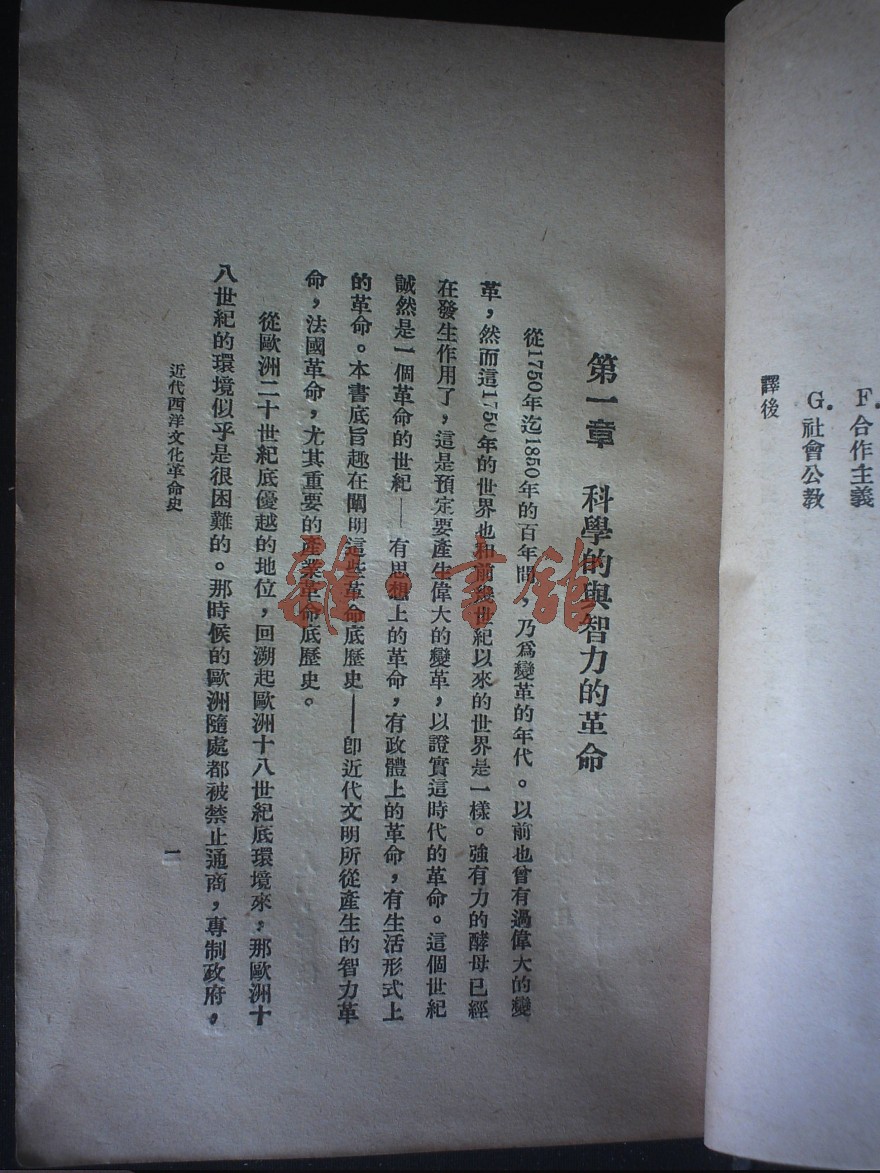 F. 合作主義
G. 社會公教
譯後
第一章 科學的與智力的革命
從1750年迄1850年的百年間，乃爲變革的年代。以前也曾有過偉大的變
革，然而這1750年的世界也和前幾世紀以來的世界是一樣。強有力的酵母已經
在發生作用了，這是預定要產生偉大的變革，以證實這時代的革命。這個世紀
誠然是一個革命的世紀——有思想上的革命，有政體上的革命，有生活形式上
的革命。本書底旨趣在闡明這些革命底歷史——卽近代文明所從產生的智力革
命，法國革命，尤其重要的產業革命底歷史。
從歐洲二十世紀底優越的地位，回溯起歐洲十八世紀底環境來，那歐洲十
八世紀的環境似乎是很困難的。那時候的歐洲隨處都被禁止通商，專制政府，
近代西洋文化革命史
一
雜·書館